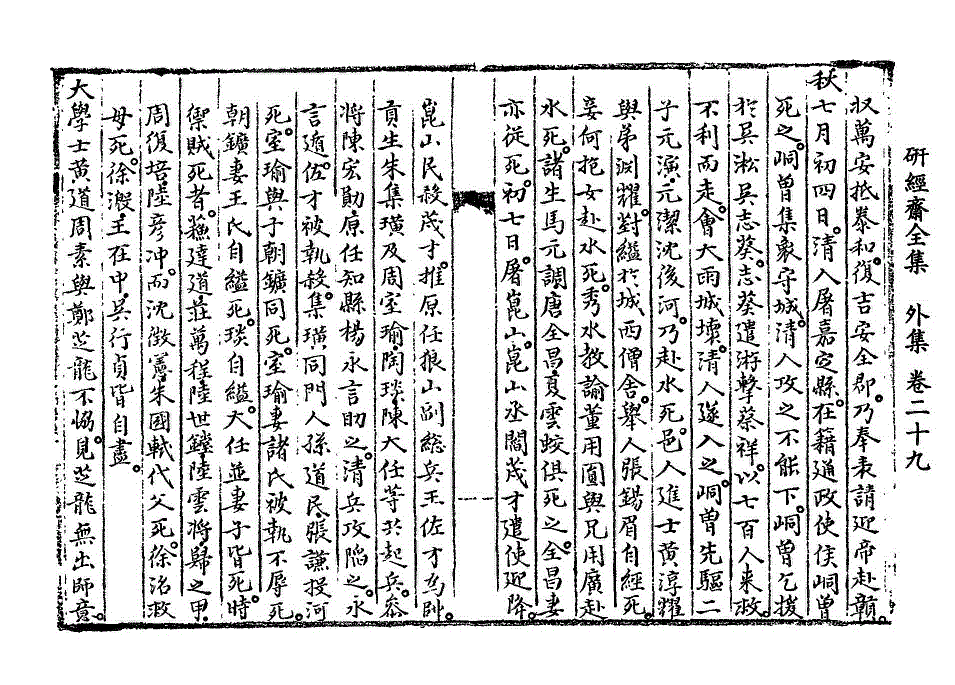 研經齋全集　外集　卷二十九
叔萬安抵泰和。復吉安全郡。乃奉表請迎帝赴贛。
秋七月初四日。清人屠嘉定縣。在籍通政使侯峒曾
死之。峒曾集衆守城。清人攻之不能下。峒曾乞援
於吳淞吳志葵。志葵遣游擊蔡祥。以七百人來救。
不利而走。會大雨城壞。清人遂入之。峒曾先驅二
子元演,元潔沈後河。乃赴水死。邑人進士黃淳耀
與弟淵耀。對縊於城西僧舍。擧人張錫眉自經死。
妾何抱女赴水死。秀水敎諭董用圓與兄用廣赴
水死。諸生馬元調,唐全昌,夏雲蛟俱死之。全昌妻
亦從死。初七日。屠崑山。崑山丞閻茂才遣使迎降。
崑山民殺茂才。推原任狼山副総兵王佐才爲帥。
貢生朱集璜及周室瑜,陶琰,陳大任等共起兵。叅
將陳宏勛。原任知縣楊永言助之。清兵攻陷之。永
言遁。佐才被執殺。集璜同門人孫道民,張謙投河
死。室瑜與子朝鑛同死。室瑜妻諸氏被執不辱死。
朝鑛妻王氏自縊死。琰自縊。大任並妻子皆死。時
禦賊死者。蘓達道,莊萬程,陸世鏜,陸雲將,歸之甲,
周復培,陸彦冲。而沈徵憲,朱國軾代父死。徐洺救
母死。徐溵,王在中,吳行貞皆自盡。
大學士黃道周素與鄭芝龍不恊。見芝龍無出師意。